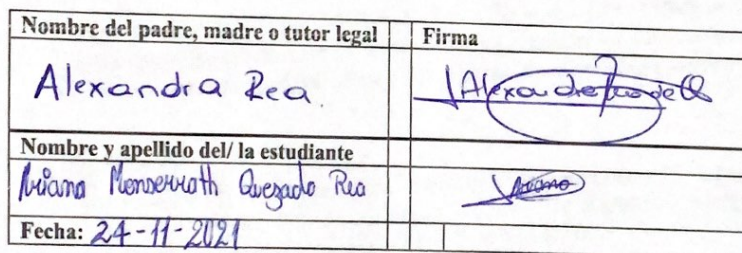 Nombre del padre, madre o tutor legal Firma
Alexandra Rea
Nombre y apellido del/ la estudiante
Ariana Monserrath Quezada Rea
Fecha: 24-11-2021